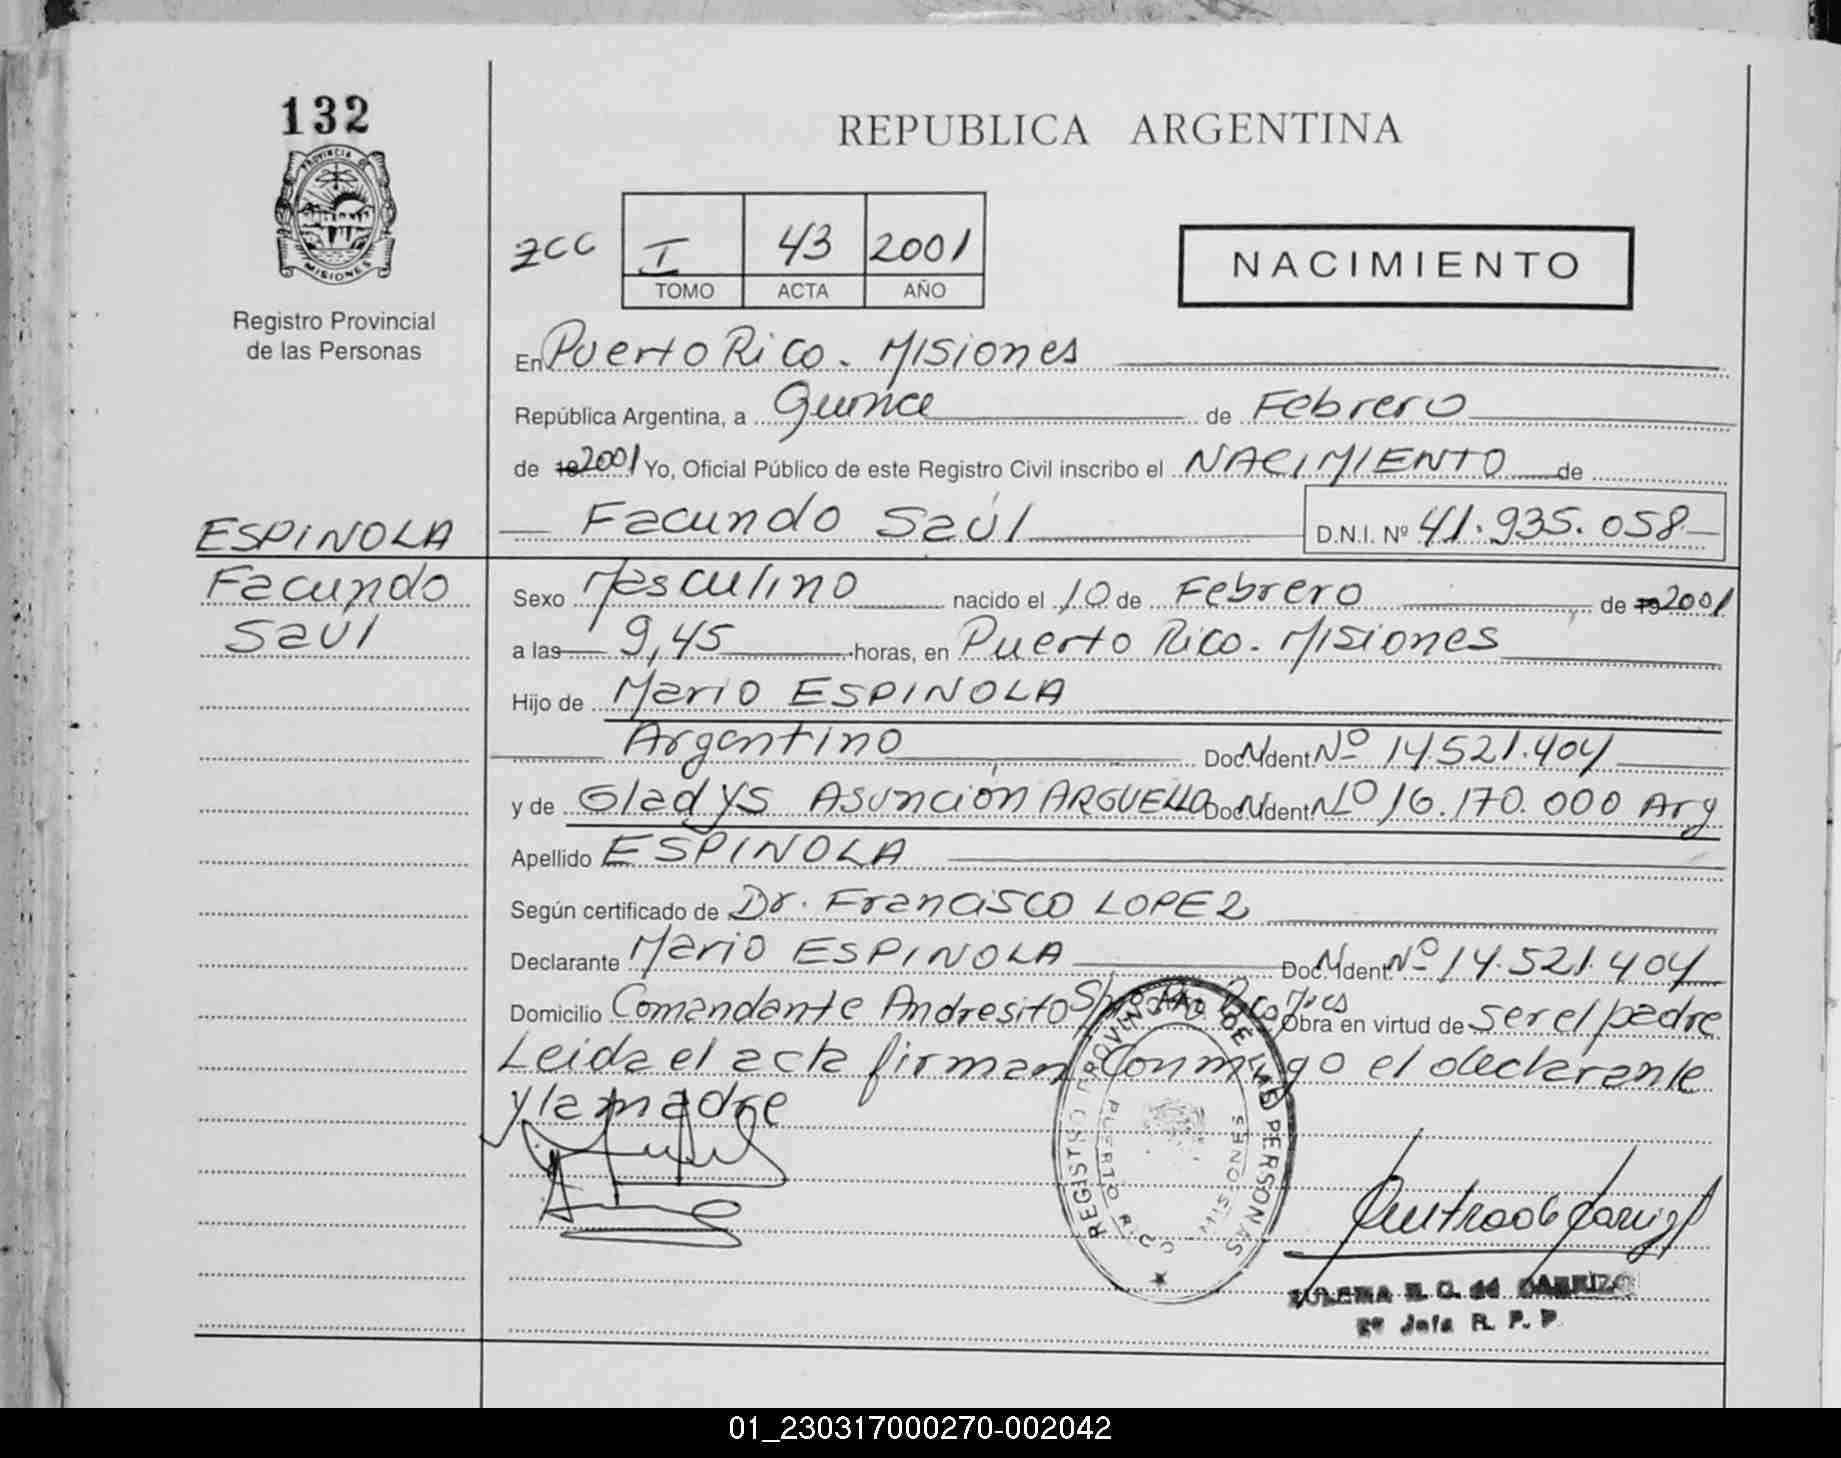 132
PROVINCIA DE
MISIONES
Registro Provincial
de las Personas
REPUBLICA ARGENTINA
I 43 2001
TOMO ACTA AÑO
NACIMIENTO
En Puerto Rico. Misiones
República Argentina, a Quince de Febrero
de 19 2001 Yo, Oficial Público de este Registro Civil inscribo el NACIMIENTO de
Facundo Saúl D.N.I. Nº 41.935.058
ESPINOLA
Facundo
Saúl
Sexo Masculino nacido el 10 de Febrero de 19 2001
a las 9,45 horas, en Puerto Rico. Misiones
Hijo de Mario ESPINOLA
Argentino Doc. Ident. Nº 14.521.404
y de Gladys Asunción ARGUELLO Doc. Ident. Nº 16.170.000 Arg
Apellido ESPINOLA
Según certificado de Dr. Francisco LOPEZ
Declarante Mario ESPINOLA Doc. Ident. Nº 14.521.404
Domicilio Comandante Andresito Obra en virtud de ser el padre
Leida el acta firman conmigo el declarante
y la madre
REGISTRO PROVINCIAL DE LAS PERSONAS
PUERTO RICO MISIONES
de CARRIZO
Jefa R. P. P
01_230317000270-002042